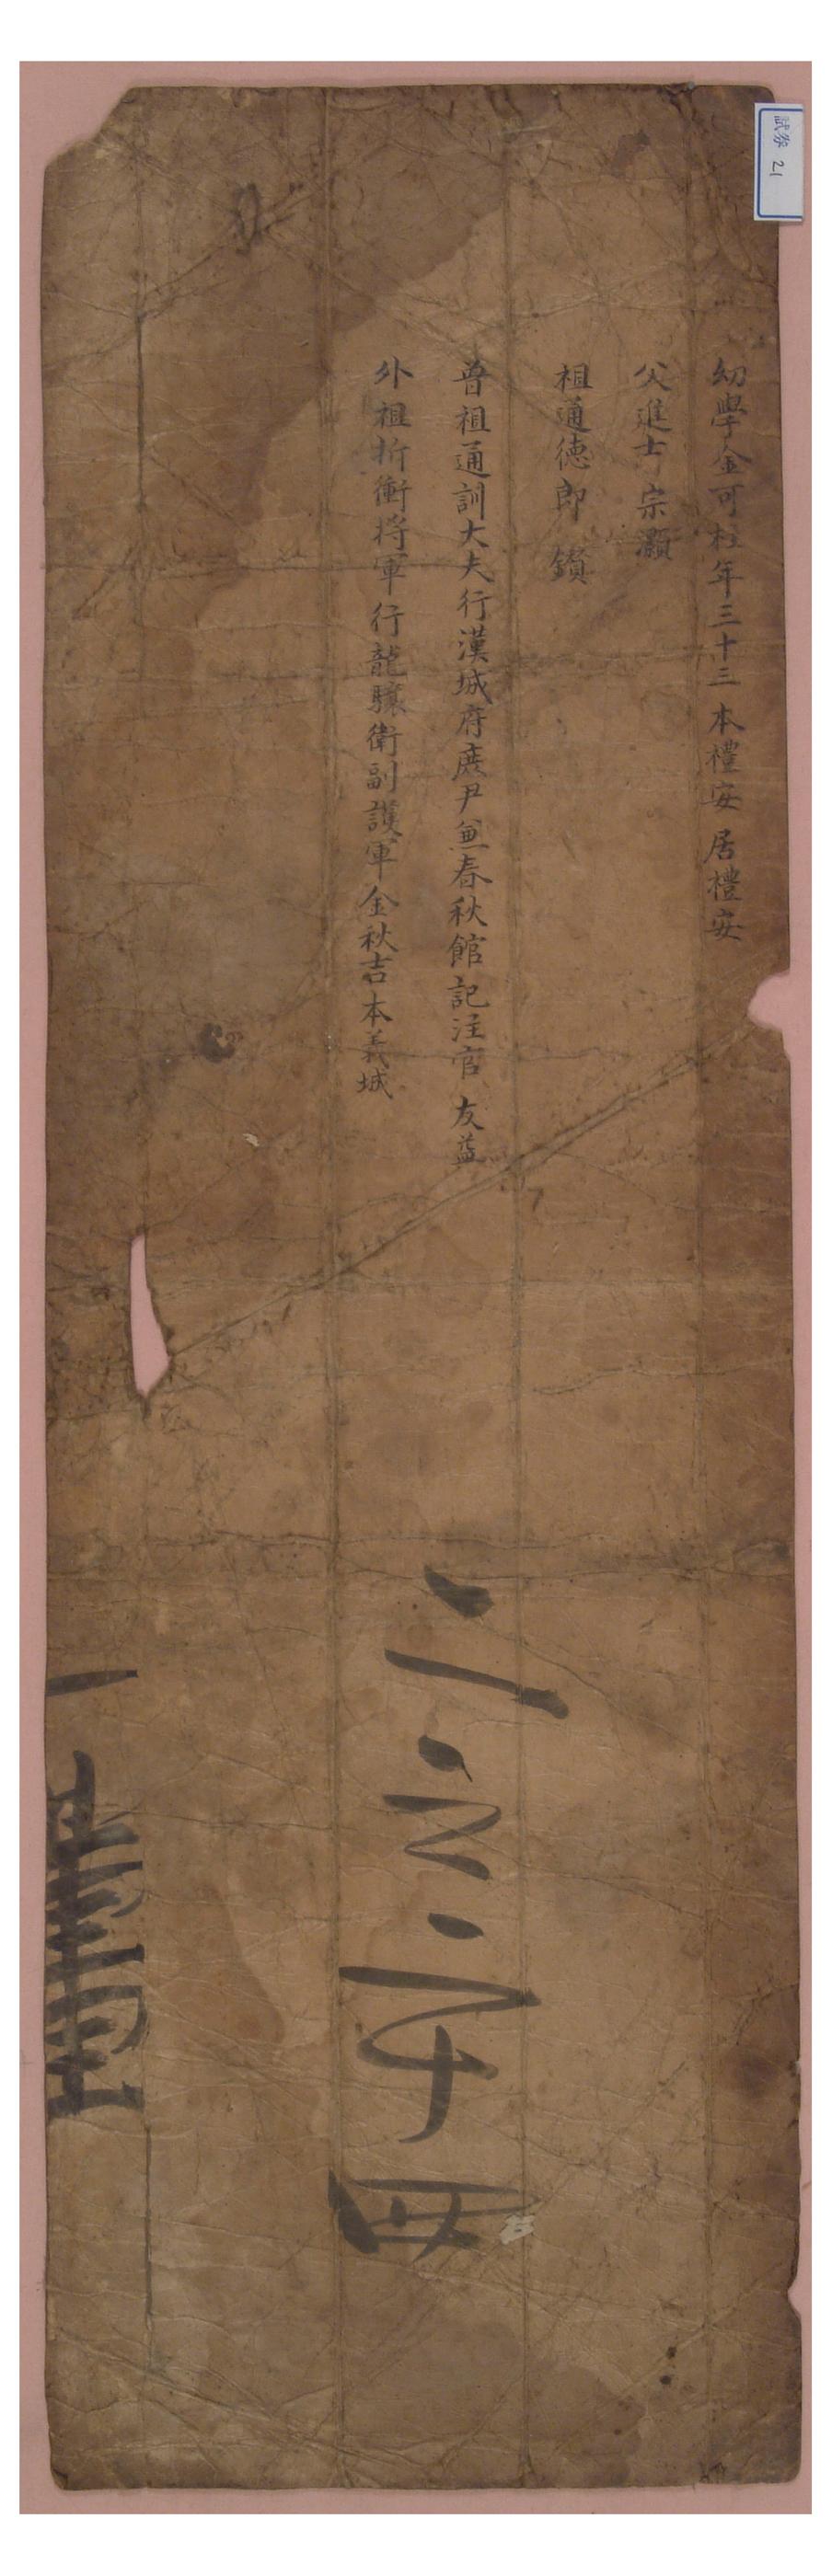 試券 21
幼學金可柱年三十三 本禮安 居禮安
父進士 宗灝
祖通德郎 鑌
曾祖通訓大夫行漢城府庶尹兼春秋館記注官 友益
外祖折衝將軍行龍驤衛副護軍金秋吉本義城
二之二千四